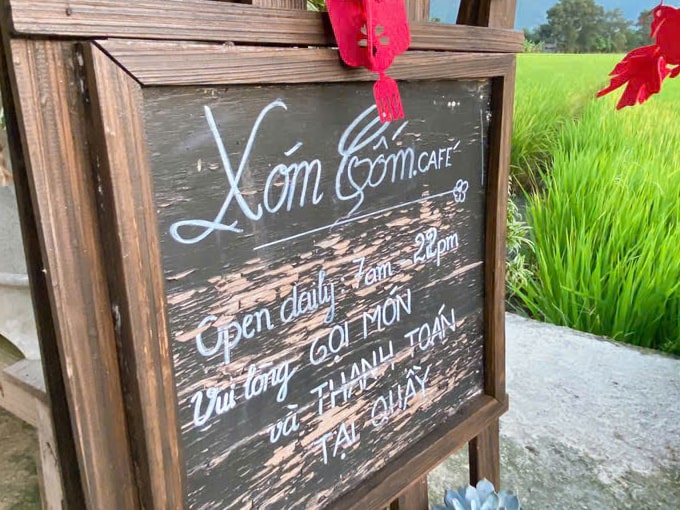 Xóm Gốm. CAFÉ
Open daily: 7am - 22pm
Vui lòng GỌI MÓN
và THANH TOÁN
TẠI QUẦY